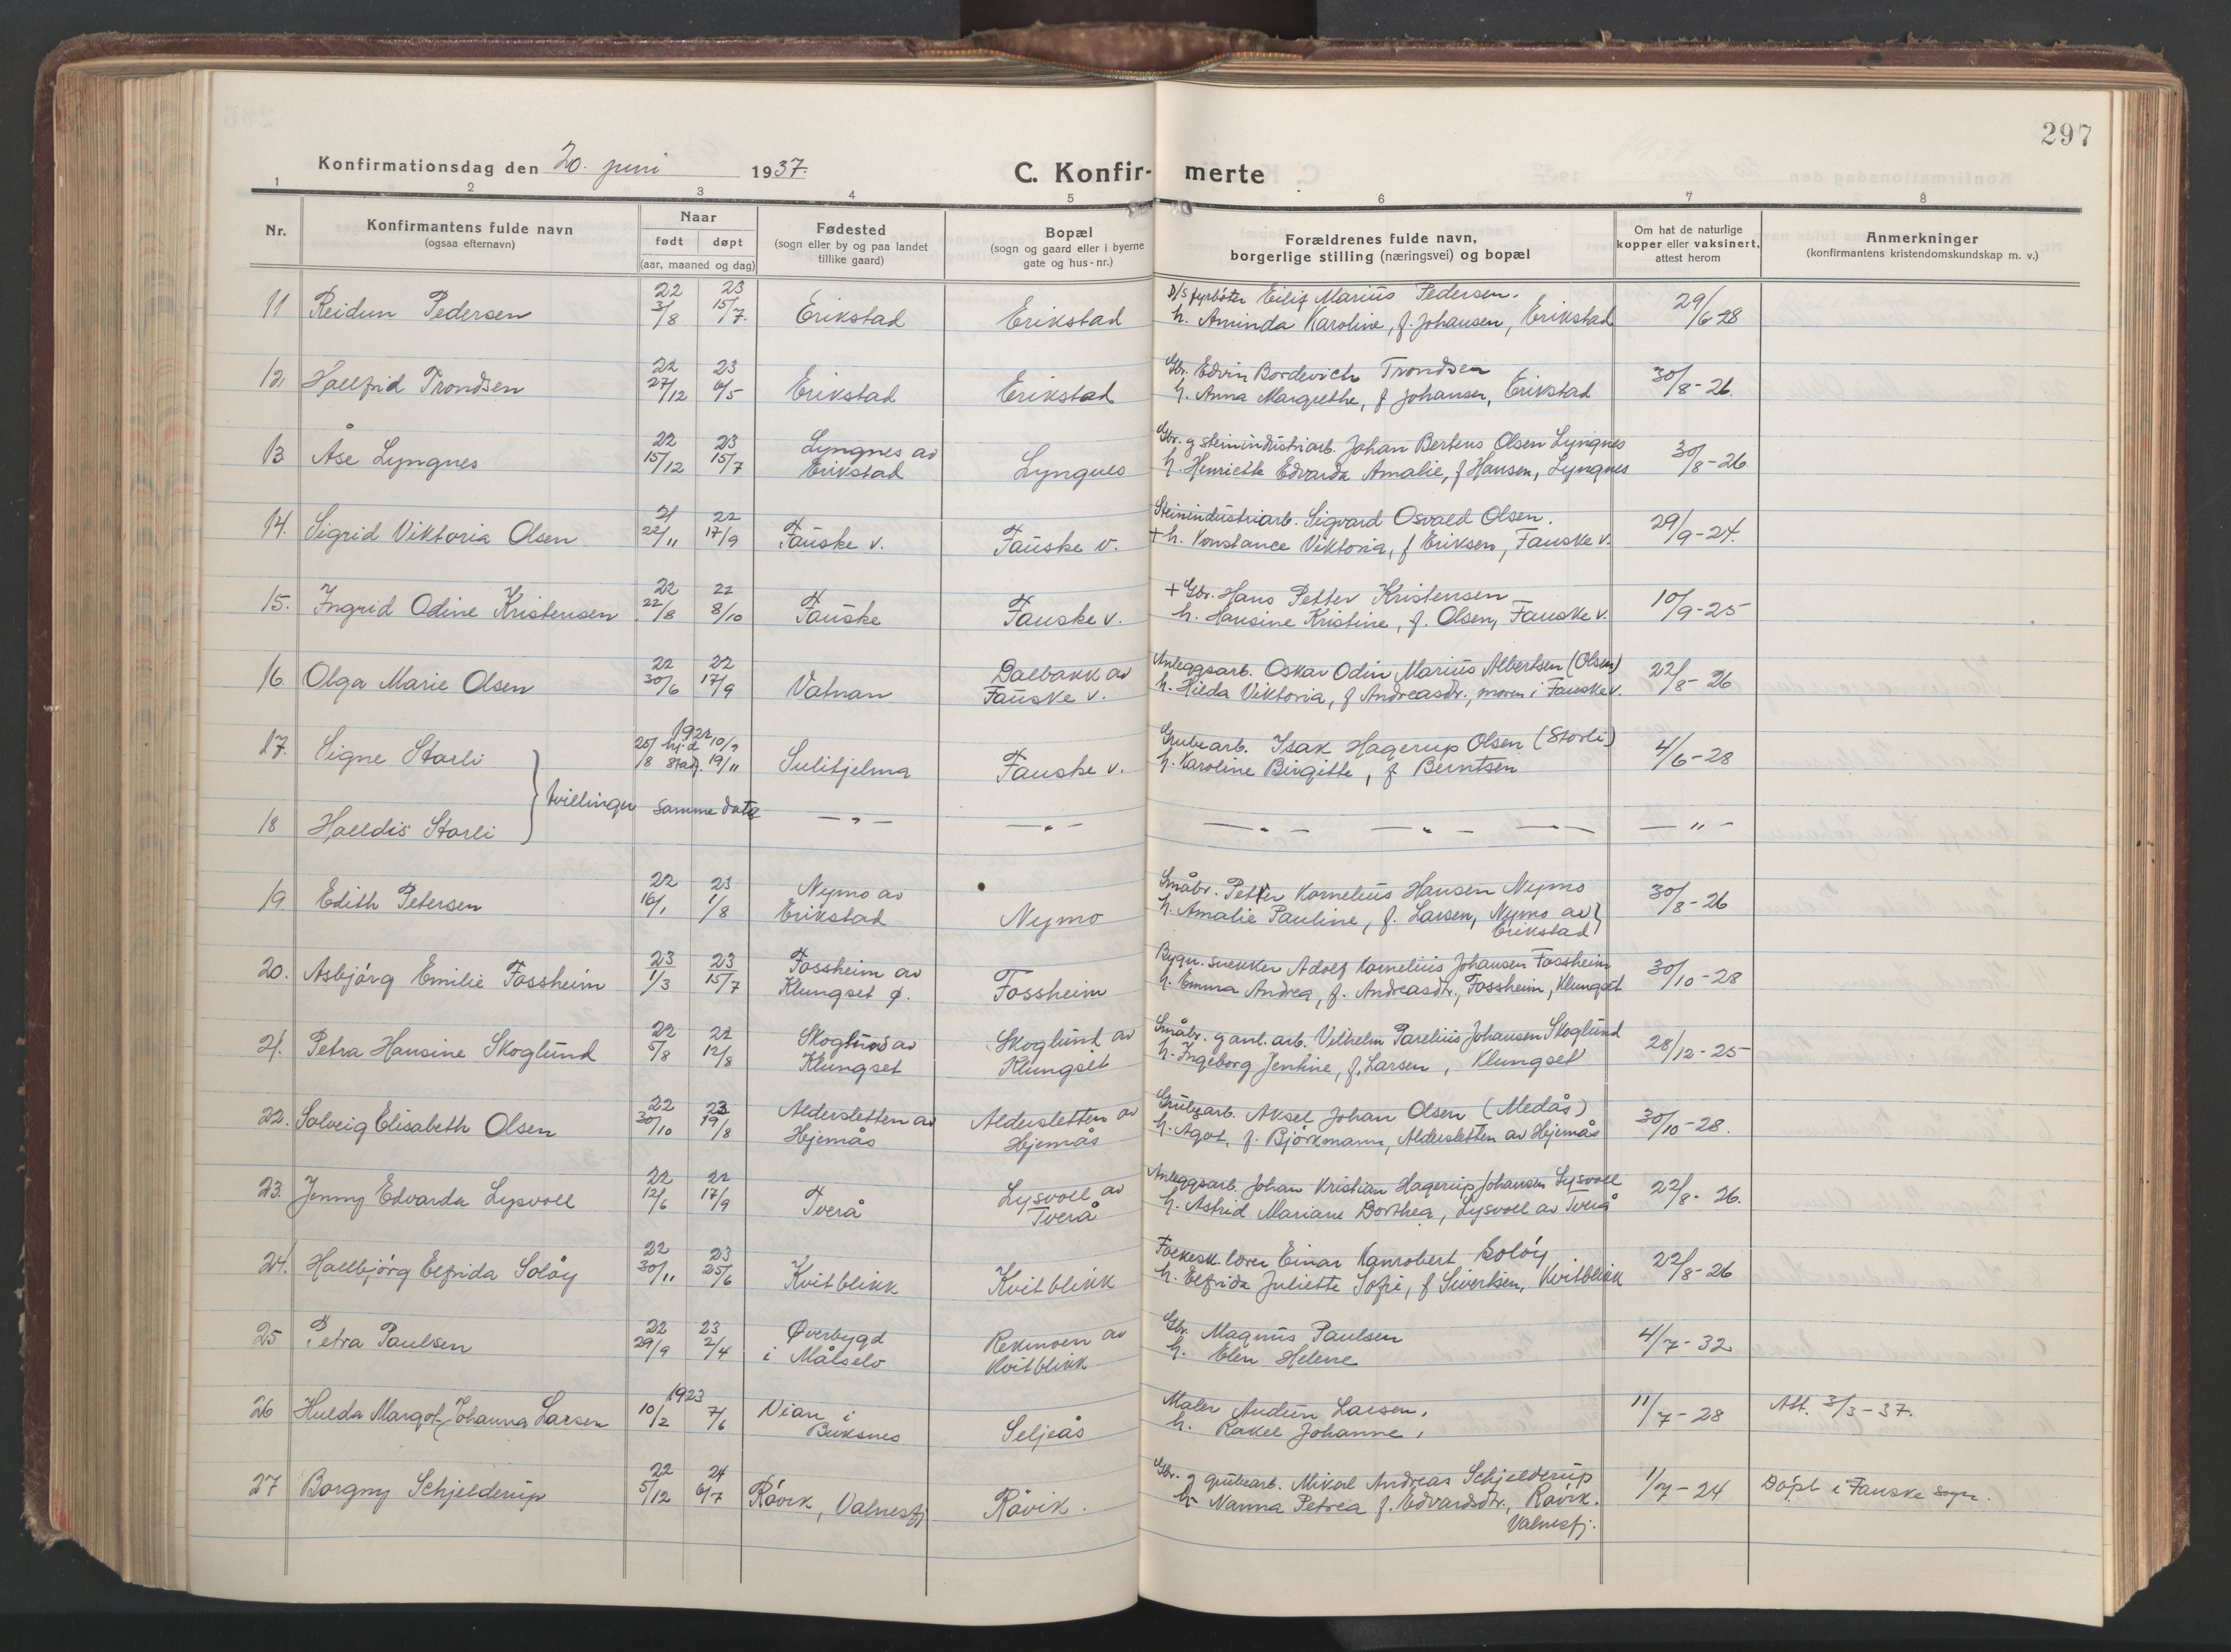 297
Konfirmationsdag den 20. juni 1937.
C. Konfir- merte
1 2 3 4 5 6 7 8
Nr.
Konfirmantens fulde navn
(ogsaa efternavn)
Naar
født døpt
(aar, maaned og dag)
Fødested
(sogn eller by og paa landet
tillike gaard)
Bopæl
(sogn og gaard eller i byerne
gate og hus-nr.)
Forældrenes fulde navn,
borgerlige stilling (næringsvei) og bopæl
Om hat de naturlige
kopper eller vaksinert,
attest herom
Anmerkninger
(konfirmantens kristendomskundskap m. v.)
22 23 D/S fyrbøter Eilif Marius Pedersen.
11 Reidun Pedersen 3/8 15/7. Erikstad Erikstad h. Aminda Karoline, f. Johansen, Erikstad 29/6 28
22 23 Gbr. Edvin Bordevich Trondsen
12. Hallfrid Trondsen 27/12 6/5 Erikstad Erikstad h. Anna Margrethe, f Johansen, Erikstad 30/8-26.
22 23 Lyngnes av Gbr. g steinindustriarb. Johan Bertens Olsen Lyngnes
13 Åse Lyngnes 15/12 15/7 Erikstad Lyngnes h. Henriette Edvarda Amalie, f Hansen, Lyngnes 30/8-26
21 22 Steinindustriarb. Sigvard Osvald Olsen.
14. Sigrid Viktoria Olsen 22/11 17/9 Fauske v. Fauske v. + h. Konstance Viktoria, f Eriksen, Fauske v. 29/9-24.
22 22 + Gbr. Hans Petter Kristensen
15. Ingrid Odine Kristensen 22/8 8/10 Fauske Fauske v. h. Hansine Kristine, f. Olsen, Fauske v. 10/9-25
22 22 Dalbakk av Anleggsarb. Oskar Odin Marius Albertsen (Olsen)
16 Olga Marie Olsen 30/6 17/9 Vatnan Fauske v. h. Hilda Viktoria, f Andreasdr., moren i Fauske v. 22/8-26
1922 Grubearb. Isak Hagerup Olsen (Storli)
17. Signe Storli 25/8 hjd 10/9 stadf. 19/11 Sulitjelma Fauske v. h. Karoline Birgitte, f Berntsen 4/6-28
tvillinger
18 Halldis Storli samme data — " — — " — — " — — " — — " —
22 23 Nymo av Småbr. Petter Kornelius Hansen Nymo
19 Edith Petersen 16/1 1/8 Erikstad Nymo h. Amalie Pauline, f. Larsen, Nymo av Erikstad 30/8-26
23 23 Fossheim av Bygn. snekker Adolf Kornelius Johansen Fossheim
20. Asbjørg Emilie Fossheim 1/3 15/7 Klungset ø. Fossheim h. Emma Andrea, f. Andreasdtr., Fossheim, Klungset 30/10-28
22 22 Skoglund av Skoglund av Småbr. g anl. arb. Vilhelm Parelius Johansen Skoglund
21. Petra Hansine Skoglund 5/8 12/8 Klungset Klungset h. Ingeborg Jentine, f. Larsen, Klungset 28/12-25
22 23 Aldersletten av Aldersletten av Grubearb. Aksel Johan Olsen (Medås)
22. Solveig Elisabeth Olsen 30/10 19/8 Hjemås Hjemås h. Agot, f. Björkmann, Aldersletten av Hjemås 30/10-28.
22 22 Lysvoll av Anleggsarb. Johan Kristian Hagerup Johansen Lysvoll
23. Jenny Edvarda Lysvoll 12/6 17/9 Tverå Tverå h. Astrid Mariane Dorthea, Lysvoll av Tverå 22/8-26.
22 23 Folkesk. lærer Einar Kanrobert Soløy
24. Hallbjørg Elfrida Soløy 30/11 25/6 Kvitblikk Kvitblikk h. Elfrida Juliette Sofie, f Sivertsen, Kvitblikk 22/8-26
22 23 Øverbygd Rekmoen av Gbr. Magnus Paulsen
25 Petra Paulsen 29/9 2/4 i Målselv Kvitblikk h. Elen Helene 4/7-32
1923 Maler Audun Larsen,
26 Hulda Margot Johanna Larsen 10/2 7/6 Vian i Buksnes Seljeås h. Rakel Johanne, 11/7-28 Att. 3/3-37.
22 24 Gbr. g grubearb. Mikal Andreas Schjelderup
27 Borgny Schjelderup 5/12 6/7 Røvik, Valnesfj Røvik. h. Nanna Petrea f. Edvardsdtr., Røvik. Valnesfj. 1/7-24 Døpt i Fauske sogn.